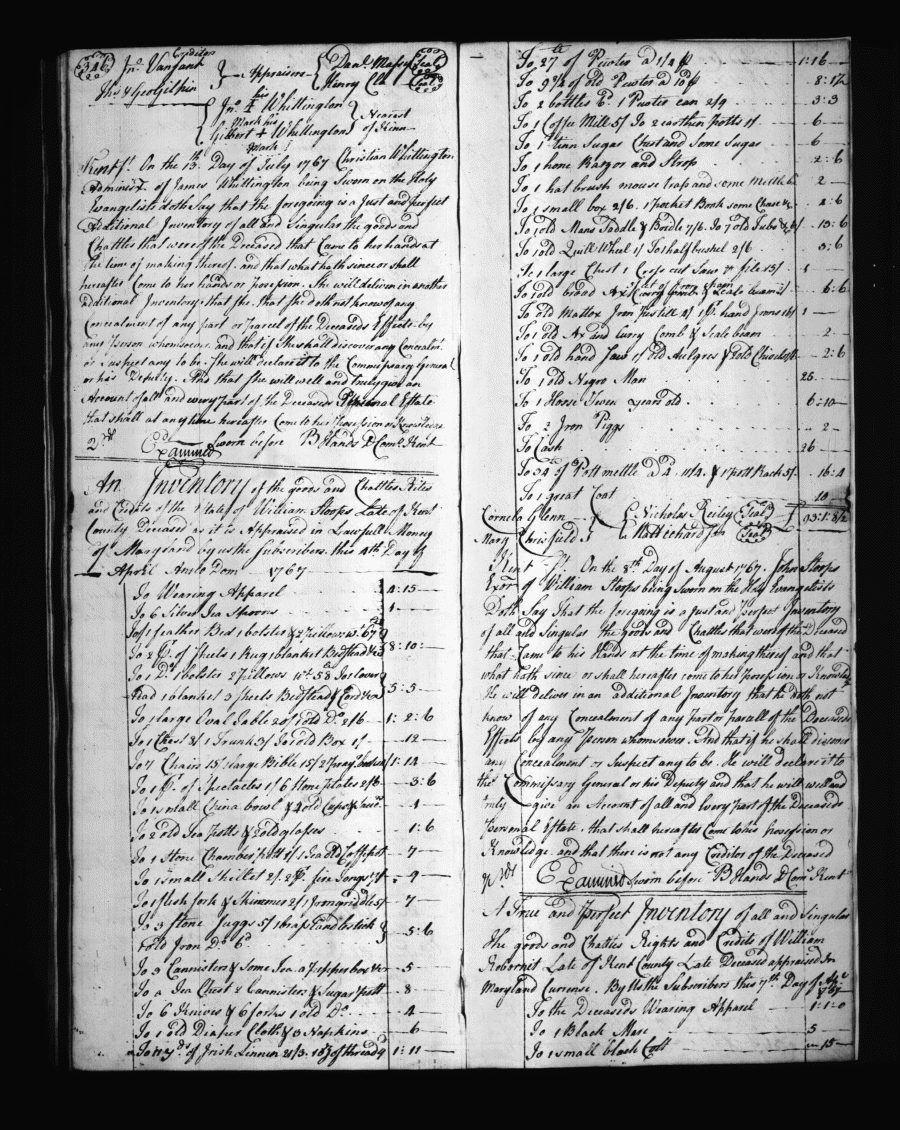 346
Creditors
Jno. Vansant
Thos & Geo Gilpin
Appraisers
Danl Massy Seal
Henry Ell Seal
Jno. his Whittington
Mark his
Gilbert + Whittington
Mark
Nearest
of Kinn
Kent ss. On the 13th Day of July 1767 Christian Whittington
Administx. of James Whittington being Sworn on the Holy
Evangelists doth Say that the foregoing is a Just and perfect
Additional Inventory of all and Singular the goods and
Chattles that were of the Deceased that Came to her hands at
the time of making thereof and that what hath since or shall
hereafter Come to her hands or possession She will deliver in another
additional Inventory that She doth not know of any
Concealment of any part or parcel of the Deceaseds Effects by
any person whomsoever and that if She shall discover any Concealmt.
or suspect any to be She will declare it to the Commissary General
or his Deputy And that She will well and truly give an
Account of all and every part of the Deceaseds Personal Estate
that shall at any time hereafter Come to her Possession or Knowledge
Examined Sworn before B Hands D Comy. Kent
An Inventory of the goods and Chattles Rites
and Credits of the Estate of William Stoops Late of Kent
County Deceased as it is Appraised in Lawfull Money
of Maryland by us the Subscribers this 4th Day of
April Anno Dom 1767
To Wearing Apparel 4:15
To 6 Silver Tea Spoons 1
To 1 feather Bed 1 bolster & 2 Pillows wt. 67
To 2 pr. of Sheets 1 Rug 1 blanket Bedstead &c 8:10:
To 1 Do. 1 bolster 2 Pillows wt. 58 To 1 cover
1 blanket 3 sheets Bedstead & Cord 5:5
To 1 large Oval Table 20/ 1 old do. 2/6 1:2:6
To 1 Chest 8/ 1 Trunk 3/ To 1 old Box 1/ 12
To 7 Chairs 15/ large Bible 15/ 2 pray. books 4/ 1:14
To 1 Pr. of Spectacles 1/ 6 Stone plates 2/6 3:6
To 1 small China bowl & 4 old Cups & 4
To 2 old Tea potts & 2 old glasses 1:6
To 1 Stone Chamber pott 1 Tea & Coffepott 7
To 1 small Skillet 2/. 2 pr. fire Tongs 4
To 1 flesh fork & Skimmer 2/ 1 Iron griddle 5/ 7
To 3 Stone Juggs 5/ 1 brass Candlestick
1 old Iron Do. 6d 5:6
To 3 Cannisters & Some Tea a Pepper box &c 5
To a Tea Chest 2 Cannisters & Sugar pott 8
To 6 Knives & 6 forks 1 old Do. 4
To 1 old Diaper Cloth & 3 Napkins 6
of Irish Linnen of thread 1:11
To 27 lb of Pewter a 1/4 1:16
To 9 1/2 of old Pewter a 8:1/2
To 2 bottles 6d. 1 Pewter can 2/9 3:3
To 1 Coffe Mill 5/ To 2 earthen potts 1/ 6
To 1 tinn Sugar Chest and Some Sugar 6
To 1 hone Razor and Strop 2:6
To 1 hat brush mouse trap and some Mettle 2
To 1 small box 2/6. 1 pocket Book some Chase &c. 4:6
To 1 old Mans Saddle & Bridle 7/6. To 7 old Tubs 13:6
To 1 old Quill Wheel 1/ To 1 half bushel 2/6 3:6
To 1 large Chest 1 Cross cut Saw & file 15/ 1
To 1 old broad Ax 6:6
To old Mattox Iron Pestill 4/ 1 pr. hand Irons 16/ 1
To 1 old Ax and Curry Comb & Scale beam 2
To 1 old hand Saw 1/ old Aulgres & 1 old Chissels 2:6
To 1 old Negro Man 25
To 1 Horse Seven years old 6:10
To 2 Iron Piggs 2
To Cash 26
To 34 lb of Pott mettle a 4. 11/4. & 1 pott Rack 5/ 16:4
To 1 great Coat 10
Cornela Glenn
Mary Chrisfield
Nicholas Reiley Seal
Matt Richardson Seal
Kent ss. On the 8th Day of August 1767. John Stoops
Exor. of William Stoops being Sworn on the Holy Evangelists
Doth Say that the foregoing is a just and Perfect Inventory
of all and Singular the goods and Chattles that were of the Deceased
that Came to his Hands at the time of making thereof and that
what hath since or shall hereafter come to his possession or Knowledge
He will deliver in an additional Inventory that he doth not
know of any Concealment of any Part or parcell of the Deceaseds
Effects by any Person whomsoever. And that if he shall discover
any Concealment or Suspect any to be He will declare it to
the Commissary General or his Deputy and that he will well and
truly give an Account of all and Every part of the Deceaseds
Personal Estate, that shall hereafter come to his possession or
Knowledge and that there is not any Creditor of the Deceased
Examined Sworn before B Hands D Comy Kent
A True and Perfect Inventory of all and Singular
the goods and Chattles Rights and Credits of William
Late of Kent County Late Deceased appraised In
Maryland Currense. By Us the Subscribers this 7th Day of
To the Deceaseds Wearing Apparel 1:1:0
To 1 Black Mare 5
To 1 small black Colt 15